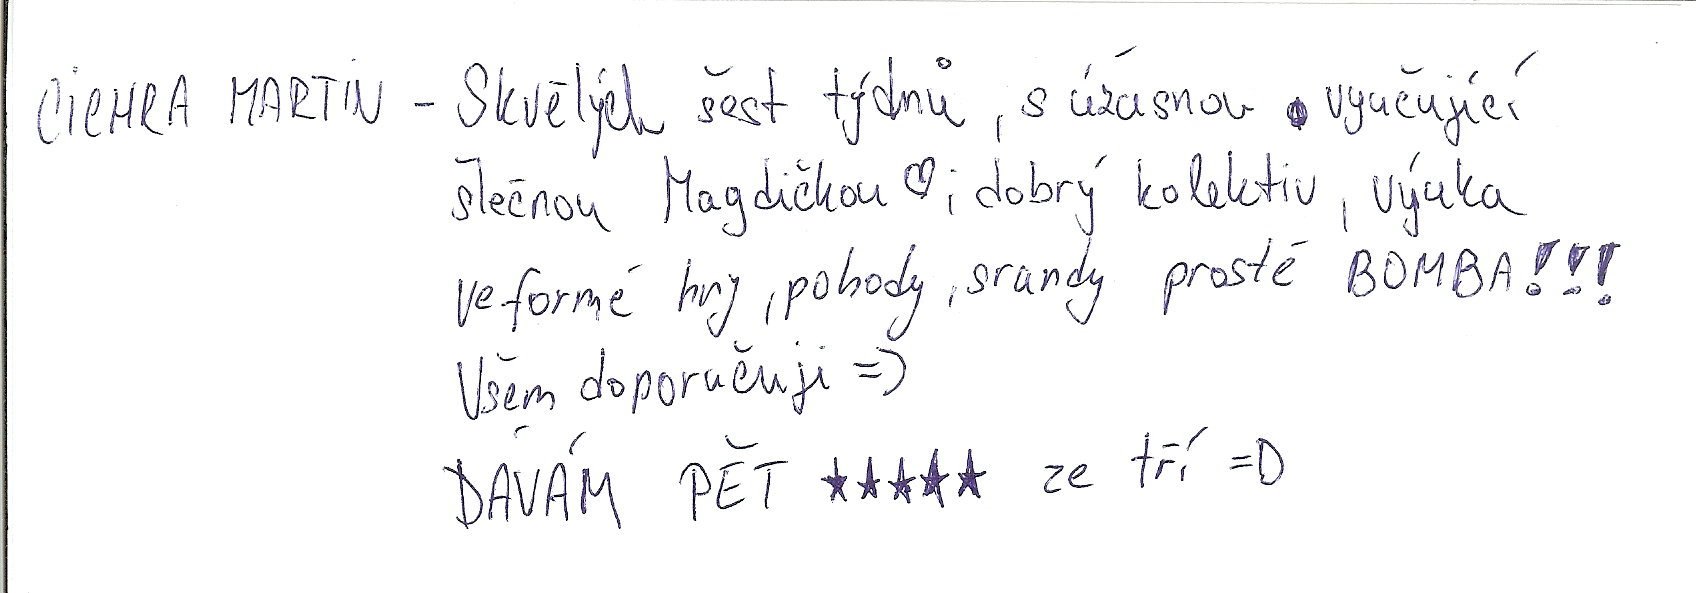 CIEHRA MARTIN - Skvělých šest týdnů, s úžasnou vyučující
slečnou Magdičkou ♡; dobrý kolektiv, výuka
ve formě hry, pohody, srandy prostě BOMBA!!!
Všem doporučuji =)
DÁVÁM PĚT ★★★★★ ze tří =D